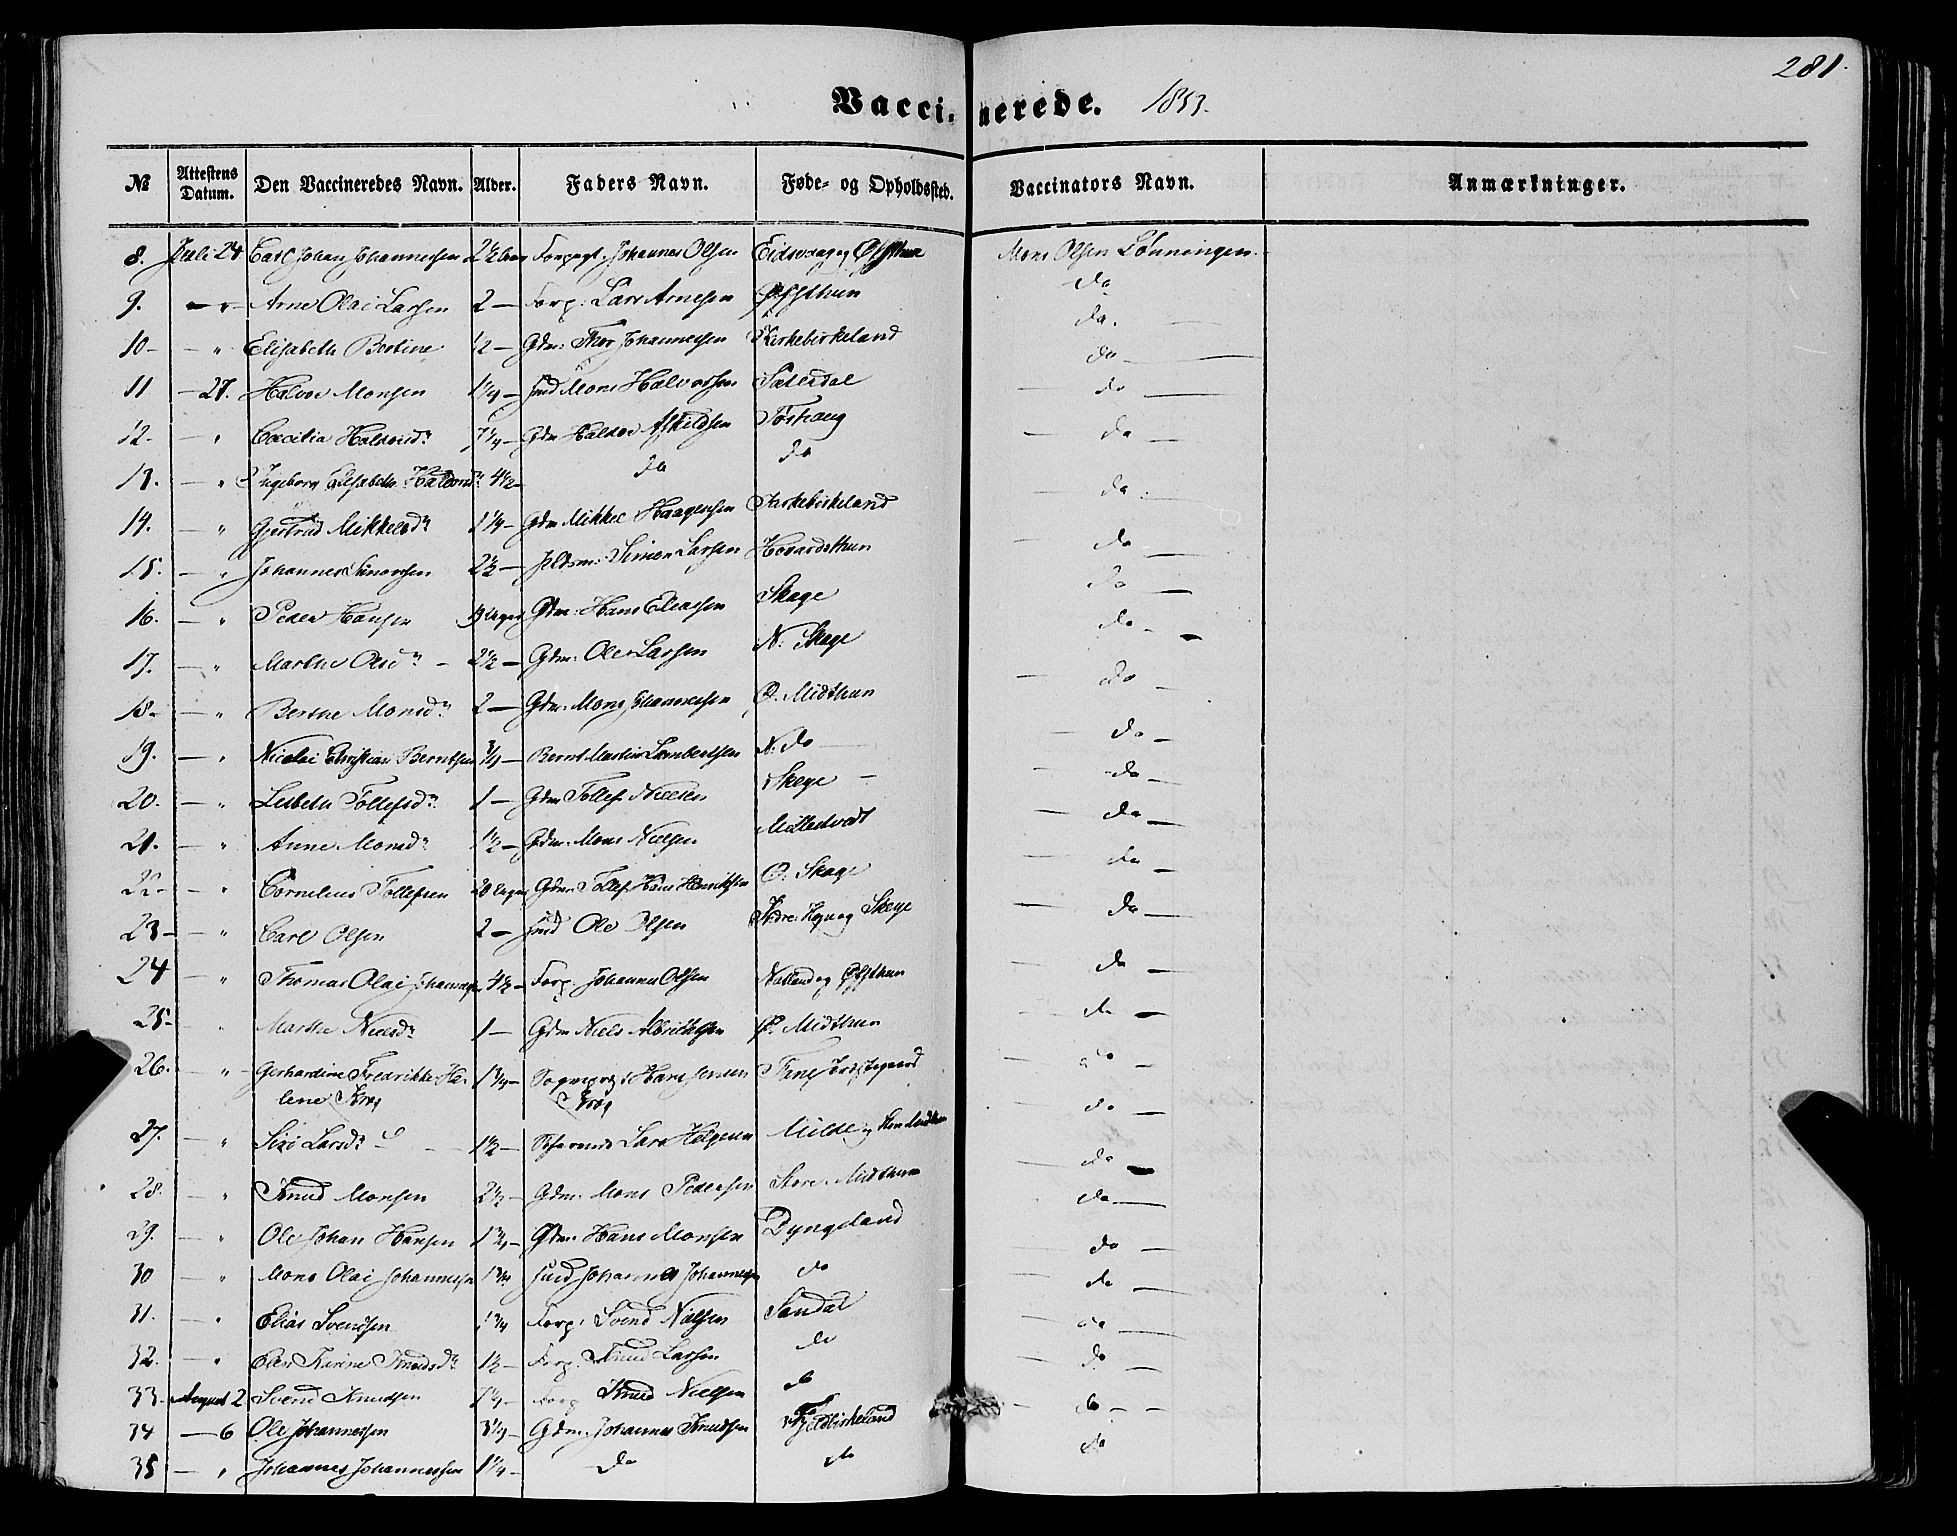 281.
Vaccinerede. 1853.
№ Attestens Datum. Den Vaccineredes Navn. Alder. Faders Navn. Føde- og Opholdssted. Vaccinators Navn. Anmærkninger.
8. Juli 24 Carl Johan Johannessen 2½ Johannes Olsen Mons Olsen Lønningen
9. — " Arne Olai Larsen 2 — Forp: Lars Arnesen Øfsthun do
10 — " Elisabeth Bertine ½ — Gdm: Thor Johannessen Kirkebirkeland do. —
11 — 27. Halvor Monsen 1¼ — Mons Halvorsen Sætersdal do —
12. — " Cæcilia Haldorsdr 7¼ — Gdm Haldor Askildsen do —
13. — " Ingeborg Elisabeth Haldorsdr 4½ — do do do —
14. — " Gjertrud Mikkelsdr 1¼ — Gdm Mikkel Haagensen Kirkebirkeland do —
15. — " Johannes Simonsen 2½ — Simon Larsen Hovardsthun do —
16. — " Peder Hansen Gdm: Hans Eliassen Skage do —
17. — " Marthe Olsdr 2½ — Gdm: Ole Larsen N. Skage do —
18. — " Berthe Monsdr 2 — Gdm: Mons Johannessen Ø. Midthun do —
19. — " Nicolai Christian Berntsen ¾ — Bernt Martin Lambertsen N: do do —
20. — " Lisbeth Tollefsdr 1 — Gdm Tollef Nielsen Skage do —
21. — " Anne Monsdr 1½ — Gdm. Mons Nielsen do —
22 — " Cornelius Tollefsen 20 Uger Gdm Tollef Hans Henriksen Ø. Skage do —
23 — " Carl Olsen 2 — Ole Olsen Skage do —
24 — " Thomas Olai Johannessen 4½ — Forp. Johannes Olsen Øfsthun do —
25 — " Marthe Nielsdr 1 — Gdm Niels Albrigtsen Ø. Midthun do —
26. — " Gerhardine Fredrikke He- 1¾ — Sognepr: Hans Jensen Fane do —
lene Krog Krog
27. — " Siri Larsdr 1½ — Lars Helgesen Milde do —
28. — " Knud Monsen 2½ — Gdm. Mons Pedersen Store Midthun do —
29. — " Ole Johan Hansen Gdm: Hans Monsen Dyngeland do —
30 — " Mons Olai Johannessen 1¾ Johannes Johannessen do do —
31. — " Elias Svendsen 1¾ Forp: Svend Nielsen Sandal do —
32. — " Knudsdr 1½ — Forp. Knud Larsen do do —
33. August 2 Svend Knudsen 1¼ — Forp Knud Nielsen do do —
34 — 6 Ole Johannessen 3¼ — Gdm. Johannes Knudsen Fjeldbirkeland do
35 — " Johannes Johannessen 1¼ — do do